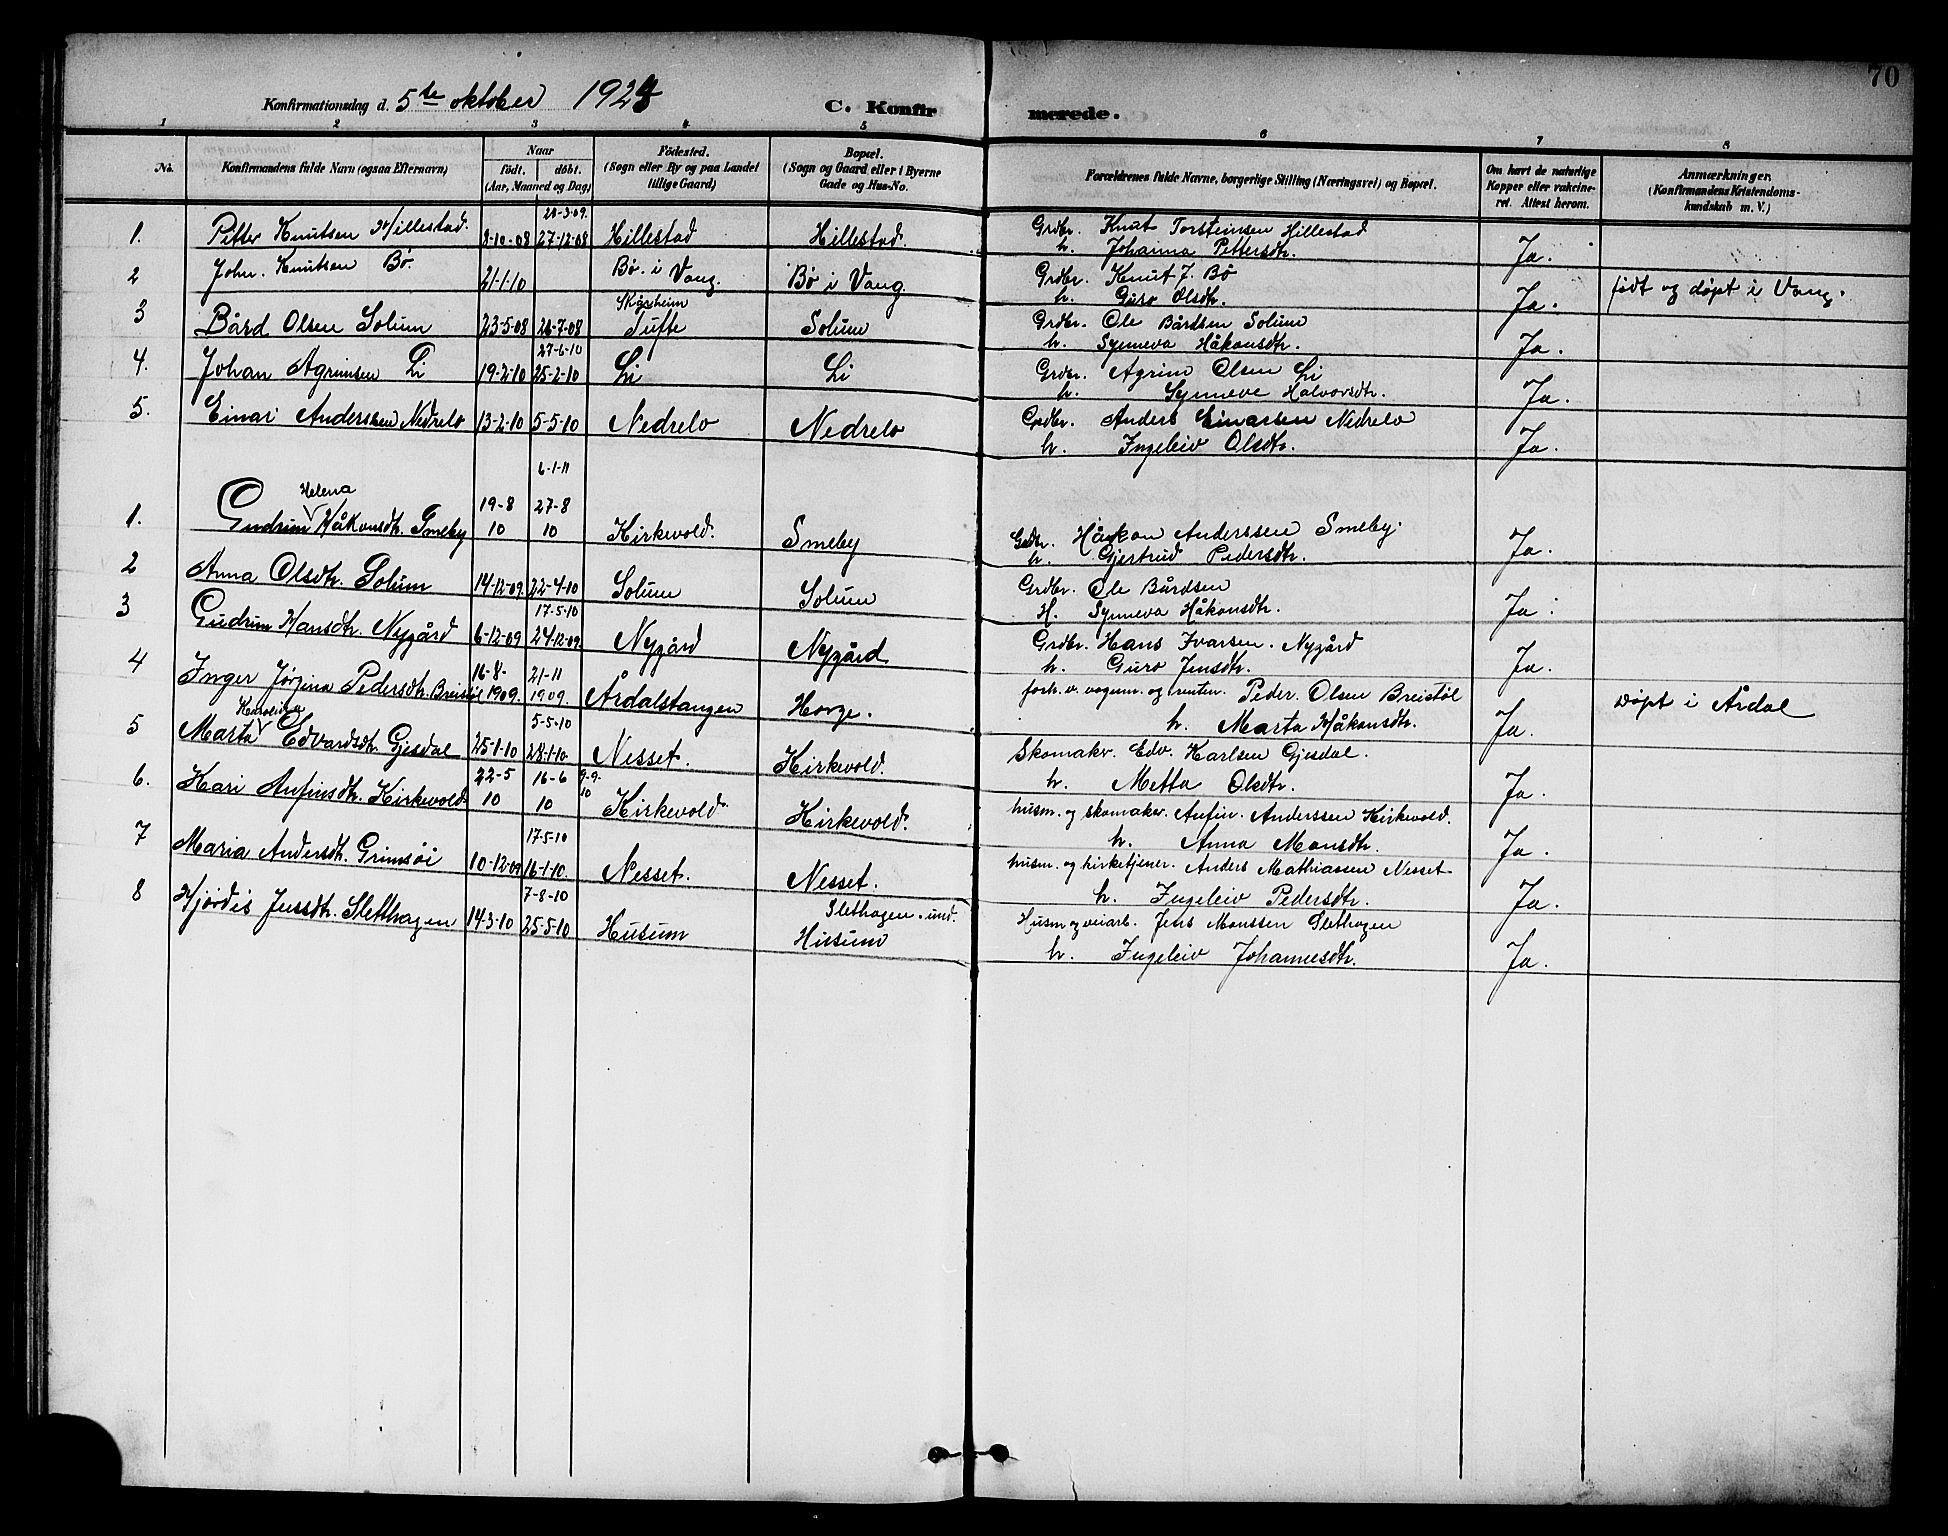 70
Konfirmationsdag d. 5te oktober 1924 C. Konfirmerede.
1 2 3 4 5 6 7 8
No. Konfirmandens fulde Navn (ogsaa Efternavn) Naar født. døbt. (Aar, Maaned og Dag) Fødested. (Sogn eller By og paa Landet tillige Gaard) Bopæl. (Sogn og Gaard eller i Byerne Gade og Hus-No. Forældrenes fulde Navne, borgerlige Stilling (Næringsvei) og Bopæl. Om havt de naturlige Kopper eller vakcineret. Attest herom. Anmærkninger. (Konfirmandens Kristendomskundskab m. V.)
28-3-09.
1. Petter Knutsen Hillestad. 8-10-08 27-12-08 Hillestad Hillestad. Grdbr. Knut Torsteinsen Hillestad
h. Johanna Pettersdtr. Ja.
2 John. Knutsen Bø. 21-1-10 Bø. i Vang. Bø i Vang Grdbr. Knut J. Bø
h. Guro Olsdtr. Ja. født og døpt i Vang.
Skårheim
3 Bård Olsen Solum 23-5-08 26-7-08 Tufte Solum Grdbr. Ole Bårdsen Solum
h. Synneva Håkonsdtr. Ja.
27-6-10
4. Johan Agrimsen Li 19-2-10 25-2-10 Li Li Grdbr. Agrim Olsen Li
h. Synneve Halvorsdtr. Ja.
5. Einar Anderssen Nedrelo 13-2-10 5-5-10 Nedrelo Nedrelo Grdbr. Anders Einarsen Nedrelo
h. Ingeleiv Olsdtr. Ja.
6-1-11
Helena 19-8 27-8
1. Gudrun Håkonsdtr. Smeby 10 10 Kirkevold. Smeby Grdbr. Håkon Anderssen Smeby.
h. Gjertrud Pedersdtr. Ja.
2 Anna Olsdtr. Solum 14-12-09. 22-4-10 Solum Solum Grdbr. Ole Bårdsen
H. Synneva Håkonsdtr. Ja.
17-5-10
3 Gudrun Hansdtr. Nygård 6-12-09 24-12-09. Nygård Nygård Grdbr. Hans Ivarsen. Nygård
h. Guro Jensdtr. Ja.
16-8- 21-11
4 Inger Jørgina Pedersdtr. Breistøl 1909. 1909. Årdalstangen Horge. forh.v. vognm. og renten. Peder. Olsen Breistøl
h. Marta Håkonsdtr. Ja. Døpt i Årdal
Karolina 5-5-10
5 Marta Edvardsdtr. Gjesdal 25-1-10 28-1-10 Nesset. Kirkevold. Skomakr. Edv. Karlsen Gjesdal.
h. Metta Olsdtr. Ja.
22-5 16-6 9-9-10
6. Kari Anfinsdtr. Kirkevold 10 10 Kirkevold Kirkevold. husm. og skomakr. Anfin. Anderssen Kirkevold.
h. Anna Monsdtr. Ja.
17-5-10
7 Maria Andersdtr. Grimsøi 10-12-09 16-1-10. Nesset. Nesset. husm. og kirketjener. Anders Mathiassen Nesset
h. Ingeleiv Pedersdtr. Ja.
7-8-10 Slethagen. und.
8 Hjørdis Jensdtr. Sletthagen 14-3-10 25-5-10 Husum Husum Husm og veiarb. Jens Monssen Slethagen
h. Ingeleiv Johannesdtr. Ja.